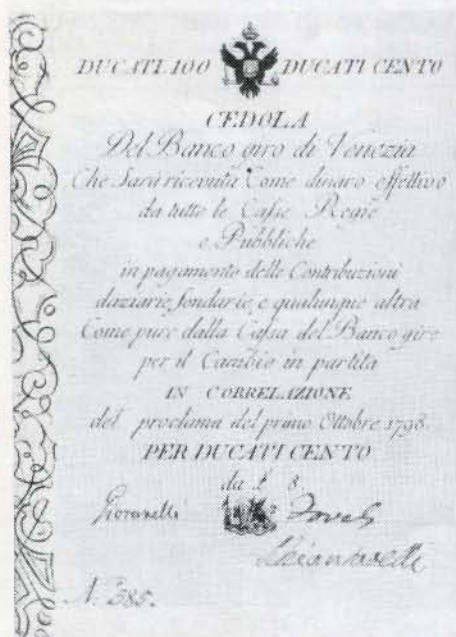 DUCATI 100 DUCATI CENTO
CEDOLA
Del Banco giro di Venezia
Che Sarà ricevuta Come dinaro effettivo
da tutte le Casse Regie
e Pubbliche
in pagamento delle Contribuzioni
daziarie, fondarie, e qualunque altra
Come pure dalla Cassa del Banco giro
per il Cambio in partita
IN CORRELAZIONE
del proclama del primo Ottobre 1798.
PER DUCATI CENTO
da £ 8
Giovanelli
N. 385.